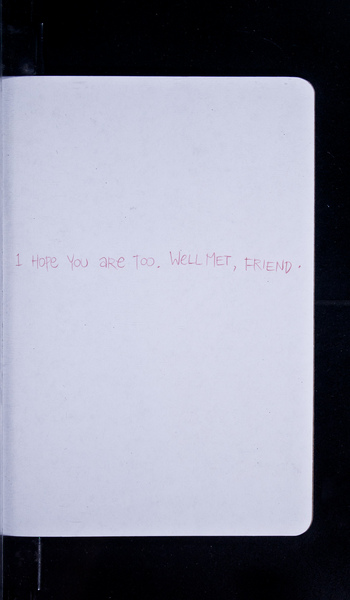 I HOPE YOU ARE TOO. WELL MET, FRIEND.